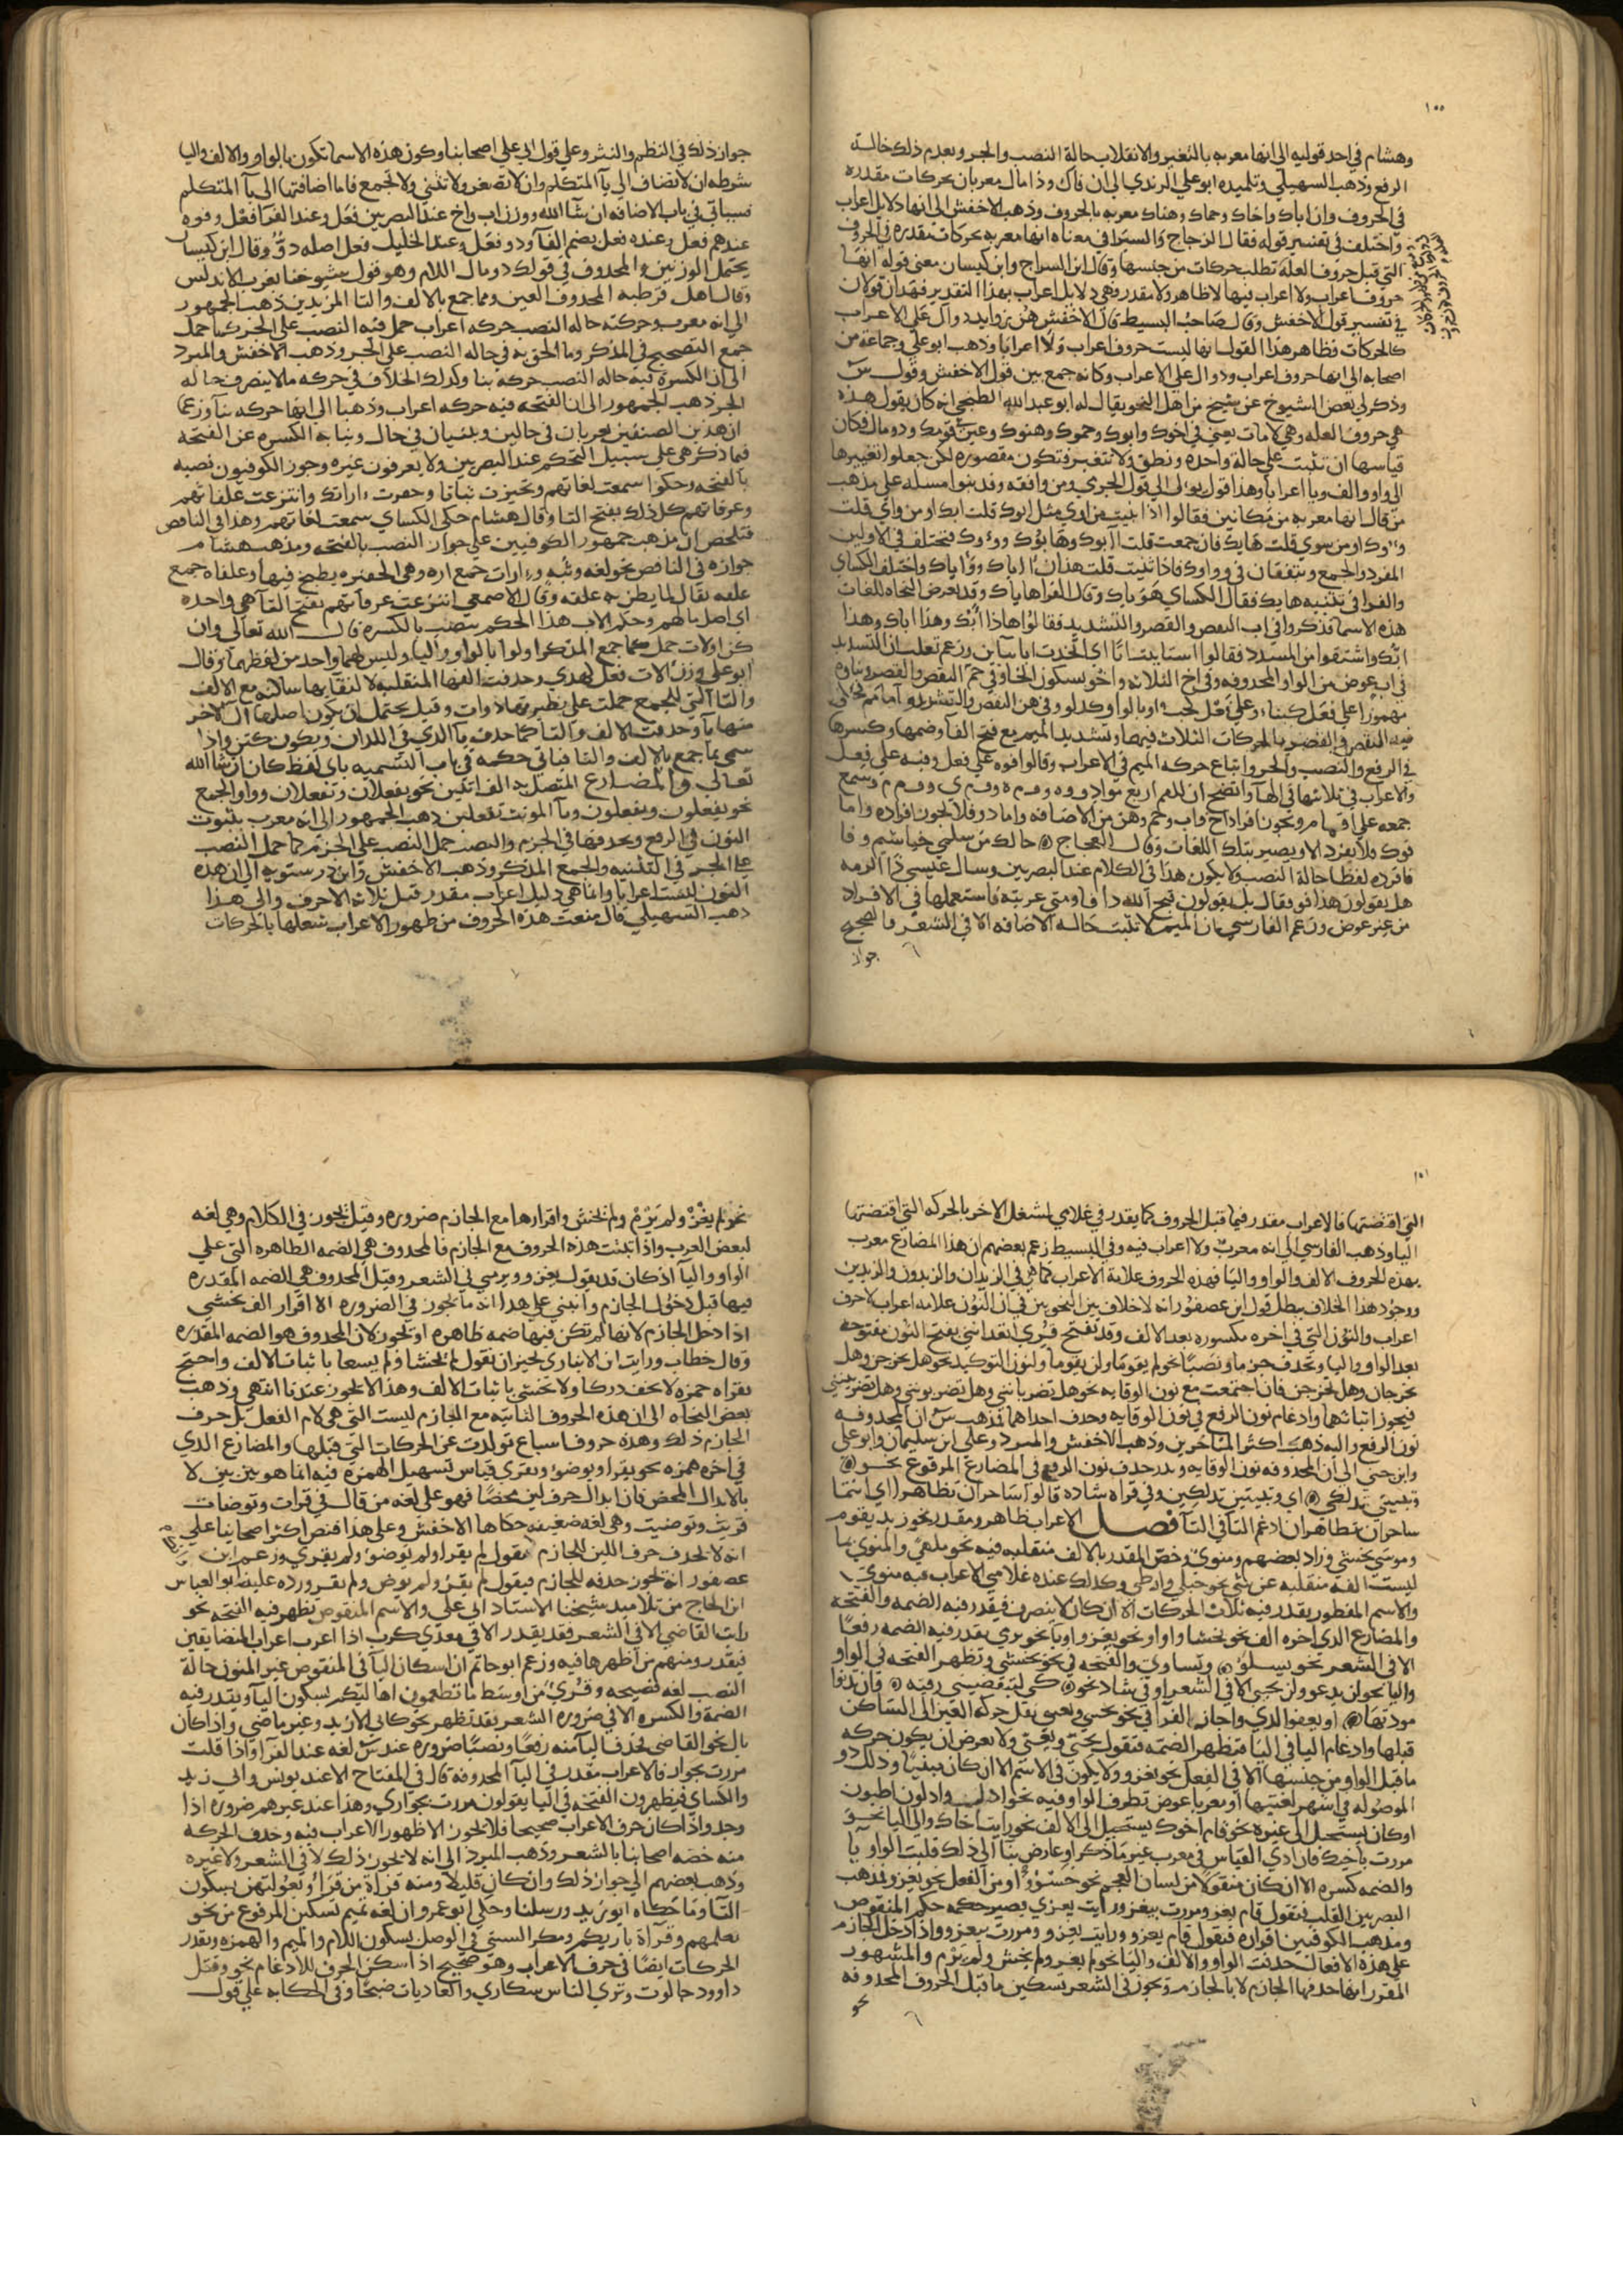 ١٥٥
وهشام في احد قوليه الى انها معربه بالتغير والانقلاب حالة النصب والجر وبعدم ذلك حالة
الرفع وذهب السهيلي وتلميذه ابو علي الرندي الى ان فاك وذا مال معربان بحركات مقدره
في الحروف وان اباك واخاك وحماك وهناك معربه بالحروف وذهب الاخفش الى انها دلايل اعراب
واختلف في تفسير قوله فقال الزجاج والسيرافي معناه انها معربه بحركات مقدره في الحروف
التي قبل حروف العله تطلب حركات من جنسها وقال ابن السراج وابن كيسان معنى قوله انها
حروف اعراب ولا اعراب فيها لا ظاهر ولا مقدر فهي دلايل اعراب بهذا التقدير فهذان قولان
في تفسير قول الاخفش وقال صاحب البسيط قال الاخفش هن زوايد دوال على الاعراب
كالحركات فظاهر هذا القول انها ليست حروف اعراب ولا اعرابا وذهب ابو علي وجماعة من
اصحابه الى انها حروف اعراب ودوال على الاعراب وكانه جمع بين قول الاخفش وقول س
وذكر لي بعض الشيوخ عن شيخ من اهل النحو يقال له ابو عبد الله الطنجي انه كان يقول هذه
هي حروف العله وهي لامات يعني في اخوك وابوك وحموك وهنوك وعين فومك وذو مال فكان
قياسها ان تثبت على حالة واحده ونطق ولا تتغير فتكون مقصوره لكن جعلوا تغييرها
الى واو والف ويا اعرابا وهذا قول يول الى قول الجرمي ومن وافقه وقد بنوا مسله على مذهب
من قال انها معربه من مكانين فقالوا اذا بنيت من اوي مثل ابوك قلت ايك او من واي قلت
المفرد والجمع ويتفقان في وواوك فاذا ثنيت قلت هذان اياك ووآياك واختلف الكساي
والفرا في تثنيه هايك فقال الكساي هوياك وقال الفرا هاياك وقد يعرض النحاه للغات
هذه الاسما فذكروا في اب النقص والقصر والتشديد فقالوا هذا ابك وهذا اباك وهذا
ابك واشتقوا من المسدد فقالوا استاببت ابا اي اتخذت ابا بآين وزعم ثعلب ان التشديد
في اب عوض من الواو المحدوفه وفي اخ الثلاثه واخو بسكون الخا وفي حم النقص والقصر وبناوه
مهموزا على فعل كبناء وعلى فعل كخبء او بالواو كدلو وفي هن النقص والتشديد واما فم فحكى
فيه النقص والقصر بالحركات الثلاث فيهما وتشديد الميم مع فتح الفآ وضمها وكسرها
في الرفع والنصب والجر واتباع حركه الميم في الاعراب وقالوا فوه على فعل وفيه على فعل
والاعراب في ثلاثها في الهآ واتضح ان للفم اربع مواد ف وه وف م ه وف م ي وف م م وسمع
جمعه على افمام ويجوز افراد اخ واب وحم وهن من الاضافه واما ذو فلا يجوز افراده واما
فوك فلا يفرد الا ويصير بتلك اللغات وقال العجاج ۞ خالط من سلمي خياشيم وفا
فافرده لفظا حالة النصب ولا يكون هذا في الكلام عند البصريين وسال عيسى ذا الرمه
هل يقولون هذا فو فقال بل يقولون قبح الله ذا فا ومتى عربيه فاستعملها في الافراد
من غير عوض وزعم الفارسي بان الميم لا تثبت حاله الاضافه الا في الشعر والصحيح
جواز
جواز ذلك في النظم والنثر وعلى قول ابي علي اصحابنا وكون هذه الاسما تكون بالواو والالف واليا
شرطه ان لا تضاف الى يآ المتكلم وان لا تصغر ولا تثنى ولا تجمع فاما اضافتها الى يآ المتكلم
فسياتي في باب الاضافه ان شآ الله ووزن اب واخ عند البصريين فعل وعند الفرآ فعل وفوه
عندهم فعل وعنده فعل بضم الفآ وذو فعل وعند الخليل فعل اصله ذوو وقال ابن كيسان
يحتمل الوزنين والمحدوف في قولك ذو مال اللام وهو قول شيوخنا بغرب الاندلس
وقال اهل قرطبه المحدوف العين ومما جمع بالالف والتا المزيدتين ذهب الجمهور
الى انه معرب وحركته حاله النصب حركه اعراب حمل فيه النصب على الجر كما حمل
جمع التصحيح في المذكر وما الحق به في حاله النصب على الجر وذهب الاخفش والمبرد
الى ان الكسره فيه حاله النصب حركه بنا وكذلك الخلاف في حركه ما لا ينصرف حاله
الجر ذهب الجمهور الى ان الفتحه فيه حركه اعراب وذهبا الى انها حركه بنآ وزعما
ان هذين الصنفين يعربان في حالين ويبنيان في حال ونيابه الكسره عن الفتحه
فما ذكر هي على سبيل التحكم عند البصريين ولا يعرفون غيره وجوز الكوفيون نصبه
بالفتحه وحكوا سمعت لغاتهم وتحيزت ثباتا وحفرت اراتك وانتزعت علقاتهم
وعرقاتهم كل ذلك بفتح التا وقال هشام حكى الكساي سمعت لغاتهم وهذا في الناقص
فتلخص ان مذهب جمهور الكوفيين على جواز النصب بالفتحه ومذهب هشام
جوازه في الناقص نحو لغه وثبه وارات جمع اره وهي الحفره يطبخ فيها وعلقاه جمع
علقه يقال لما يظن به علقه وقال الاصمعي انتزعت عرقاتهم بفتح التآ هي واحده
اي اصل مالهم وحكم الاب هذا الحكم ينصب بالكسره قال الله تعالى وان
كن اولات حمل كما جمع المذكر اولوا بالواو واليا وليس لهما واحد من لفظهما وقال
ابو علي وزن الات فعل كهدي وحدفت الفها المنقلبه لالتقايها ساكنه مع الالف
والتا التي للجمع حملت على نظيرتها ذوات وقيل يحتمل ان يكون اصلها الى اخر
منها يآ وحدفت الالف والتا كما حدف يآ الذي في اللذان ويكون كتن واذا
سمي بما جمع بالالف والتا فياتي حكمه في باب التسميه باي لفظ كان ان شا الله
تعالى والمضارع المتصل به الف اثنين نحو يفعلان وتفعلان وواو الجمع
نحو يفعلون وتفعلون ويآ المونث تفعلين ذهب الجمهور الى انه معرب بثبوت
النون في الرفع وبحدفها في الجزم والنصب حمل النصب على الجزم كما حمل النصب
على الجر في التثنيه والجمع المذكر وذهب الاخفش وابن درستويه الى ان هذه
النون ليست اعرابا وانما هي دليل اعراب مقدر قبل ثلاثه الاحرف والى هذا
ذهب السهيلي قال منعت هذه الحروف من ظهور الاعراب شغلها بالحركات
١٥٦
التي اقتضتها فالاعراب مقدر فيما قبل الحروف كما يقدر في غلامي لشغل الاخر بالحركه التي اقتضتها
اليا وذهب الفارسي الى انه معرب ولا اعراب فيه وفي البسيط زعم بعضهم ان هذا المضارع معرب
بهذه الحروف الالف والواو واليا فهذه الحروف علامة الاعراب كما هي في الزيدان والزيدون والزيدين
ووجود هذا الخلاف يبطل قول ابن عصفور انه لا خلاف بين النحويين في ان النون علامه اعراب لا حرف
اعراب والنون التي في اخره مكسوره بعد الالف وقد تفتح قري اتعدانني بفتح النون مفتوحه
بعد الواو واليا وتحدف جزما ونصبا نحو لم يقوما ولن يقوما ولنون التوكيد نحو هل تخرجن وهل
تخرجان وهل تخرجن فان اجتمعت مع نون الوقايه نحو هل تضربانني وهل تضربونني وهل تضربينني
فيجوز اثباتها وادغام نون الرفع في نون الوقايه وحدف احداهما فذهب س ان المحدوفه
نون الرفع واليه ذهب اكثر المتاخرين وذهب الاخفش والمبرد وعلي ابن سليمان وابو علي
وابن جني الى ان المحدوفه نون الوقايه وندر حدف نون الرفع في المضارع المرفوع نحو ۞
وتبيتي تدلكي ۞ اي وتبيتين تدلكين وفي قراه شاذه قالوا ساحران تظاهرا اي انتما
ساحران تتظاهران ادغم التا في الظآ فصل الاعراب ظاهر ومقدر نحو زيد يقوم
وموسى يخشى وزاد بعضهم ومنوي وخص المقدر بالالف منقلبه فيه نحو ملهى والمنوي بما
ليست الفه منقلبه عن شي نحو حبلى وارطى وكذلك عنده غلامي الاعراب فيه منوي
والاسم المقصور يقدر فيه ثلاث الحركات الا ان كان لا ينصرف فيقدر فيه الضمه والفتحه
والمضارع الذي اخره الف نحو يخشا او واو نحو يغزو او يآ نحو يرمي يقدر فيه الضمه رفعا
الا في الشعر نحو يسلو ۞ وتساوي والفتحه في نحو يخشى وتظهر الفتحه في الواو
واليا نحو لن يدعو ولن يجي الا في الشعر او في شاذ نحو ۞ كي لتقضيني رقيه ۞ وان تدنوا
مودتها ۞ او يعفو الذي واجاز الفرآ في نحو يحيي ويعيي نقل حركه العين الى الساكن
قبلها وادغام اليا في اليا فتظهر الضمه فتقول يحي ويعي ولا يعرض ان يكون حركه
ما قبل الواو من جنسها الا في الفعل نحو يغزو ولا يكون في الاسم الا ان كان مبنيا وذلك ذو
الموصوله في اشهر لغتيها او معربا عوض تطرف الواو فيه نحو ادل وادلو اطبون
او كان يستحيل الى غيره نحو قام اخوك يستحيل الى الالف نحو رايت اخاك والى اليا نحو
مررت باخيك فان ادي القياس في معرب غير ما ذكر او عارض بنا الى ذلك قلبت الواو يآ
والضمه كسره الا ان كان منقولا من لسان العجم نحو خسرو او من الفعل نحو يغزو فمذهب
البصريين القلب فتقول قام يغز ومررت بيغز ورايت يغزي يصير حكمه حكم المنقوص
ومذهب الكوفيين اقراره فتقول قام يغزو ورايت يغزو ومررت بيغزو واذا دخل الجازم
على هذه الافعال حدفت الواو والالف واليا نحو لم يغز ولم يخش ولم يرم والمشهور
المقرر انها حدفها الجازم لا بالجازم ويجوز في الشعر تسكين ما قبل الحروف المحدوفه
نحو
نحو لم يغز ولم يرم ولم يخش واقرارها مع الجازم ضروره وقيل يجوز في الكلام وهي لغه
لبعض العرب واذا ثبتت هذه الحروف مع الجازم فالمحدوف هي الضمه الظاهره التي على
الواو واليآ اذ كان قد يقول يغزو ويرمي في الشعر وقيل المحدوف هي الضمه المقدره
فيها قبل دخول الجازم وانبني على هذا انه ما يجوز في الضروره الا اقرار الف يخشى
اذا دخل الجازم لانها لم تكن فيها ضمه ظاهره او تجوز لان المحدوف هو الضمه المقدره
وقال خطاب ورايت ابن الانباري يجيز ان نقول لم يخشا ولم يسعا باثبات الالف واحتج
بقراه حمزه لا تخف دركا ولا تخشى باثبات الالف وهذا لا يجوز عندنا انتهى وذهب
بعض النحاه الى ان هذه الحروف الثابته مع الجازم ليست التي هي لام الفعل بل حرف
الجازم ذلك وهذه حروف اشباع تولدت عن الحركات التي قبلها والمضارع الذي
في اخره همزه نحو يقرا ويوضو ويقري قياس تسهيل الهمزه فيه انما هو بين بين لا
بالابدال المحض فان ابدال حرف لين محضا فهو على لغه من قال في قرات وتوضات
قريت وتوضيت وهي لغه ضعيفه حكاها الاخفش وعلى هذا فنص اكثر اصحابنا على
انه لا يحدف حرف اللين للجازم فتقول لم يقرا ولم يوضو ولم يقري وزعم ابن
عصفور انه يجوز حدفه للجازم فيقول لم يقر ولم يوض ولم يقر ورده عليه ابو العباس
ابن الحاج من تلاميذ شيخنا الاستاذ ابي علي والاسم المنقوص تظهر فيه الفتحه نحو
رايت القاضي الا في الشعر فقد يقدر الا في معدي كرب اذا اعرب اعراب المتضايفين
فيقدر ومنهم من اظهرها فيه وزعم ابو حاتم ان اسكان اليآ في المنقوص غير المنون حالة
النصب لغه فصيحه وقري من اوسط ما تطعمون اهاليكم بسكون اليآ ويقدر فيه
الضمه والكسره الا في ضروره الشعر فقد تظهر نحو كابي لازيد وغير ماضي واذا كان
بال نحو القاضي تحدف اليآ منه رفعا ونصبا ضروره عند س لغه عند الفرآ واذا قلت
مررت بجوار فالاعراب مقدر في اليآ المحدوفه قال في المفتاح الا عند يونس وابي زيد
والكساي فيظهرون الفتحه في اليآ يقولون مررت بجواري وهذا عند غيرهم ضروره اذا
وجد واذا كان حرف الاعراب صحيحا فلا يجوز الا ظهور الاعراب فيه وحدف الحركه
منه خصه اصحابنا بالشعر وذهب المبرد الى انه لا يجوز ذلك لا في الشعر ولا غيره
وذهب بعضهم الى جواز ذلك وان كان قليلا ومنه قراة من قرا وبعولتهن بسكون
التا وما حكاه ابو زيد ورسلنا وحكى ابو عمرو ان لغه تميم تسكين المرفوع من نحو
يعلمهم وقراة باريكم ومكر السيئ في الوصل بسكون اللام والميم والهمزه وتقدر
الحركات ايضا في حرف الاعراب وهو صحيح اذا سكن الحرف للادغام نحو وقتل
داوود جالوت وتري الناس سكاري والعاديات ضبحا وفي الحكايه على قول